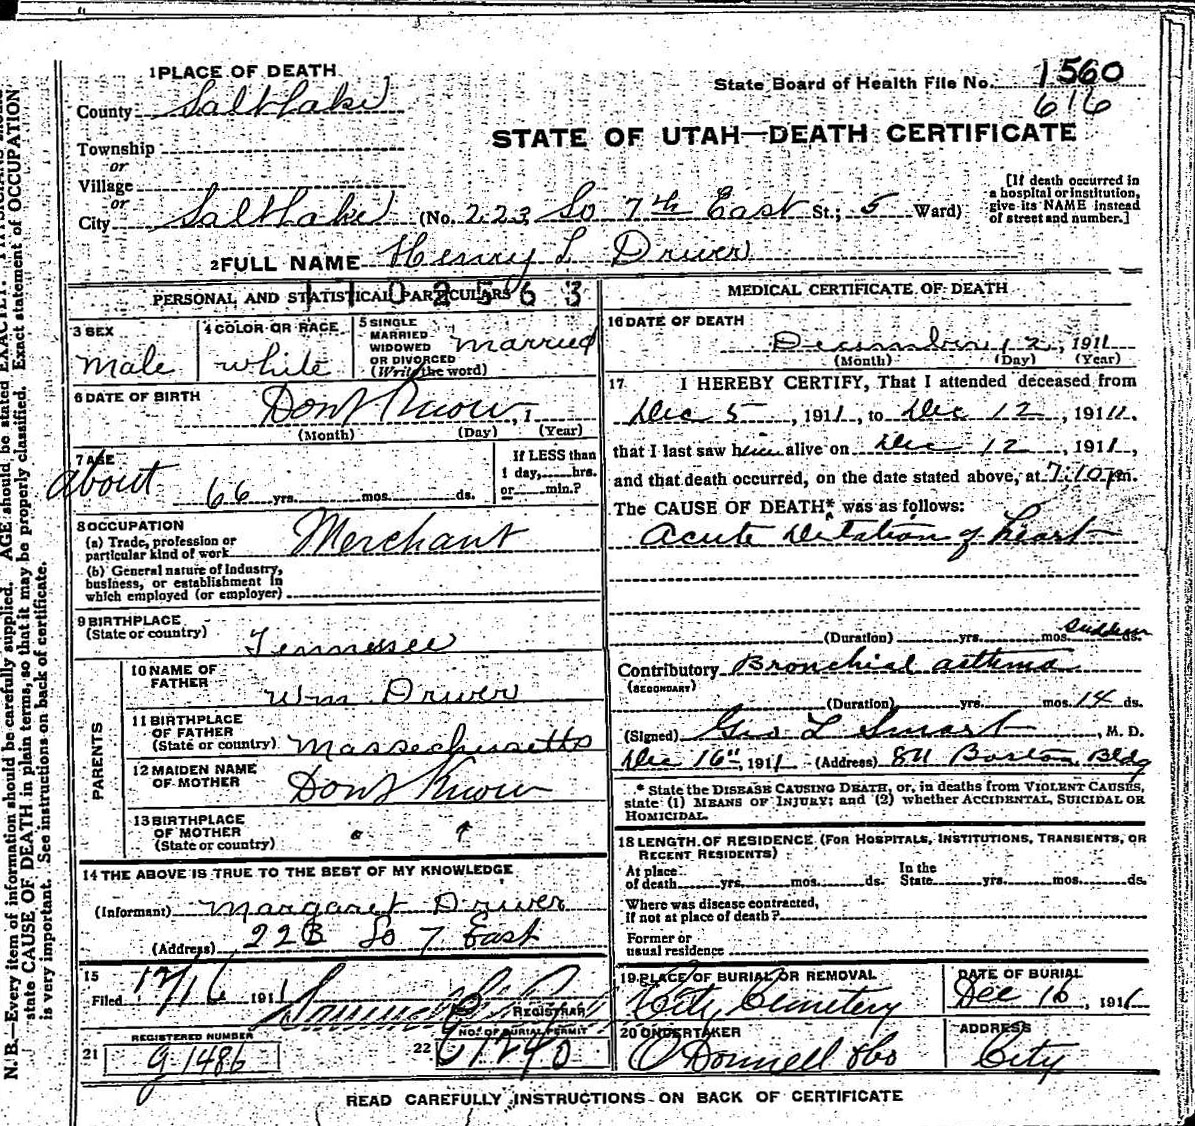 1 PLACE OF DEATH
State Board of Health File No. 1560
616
County Salt Lake
STATE OF UTAH—DEATH CERTIFICATE
Township
or
Village
or
City Salt Lake (No. 223 So 7th East St.; 5 Ward)
[If death occurred in a hospital or institution, give its NAME instead of street and number.]
2 FULL NAME Henry L Driver
PERSONAL AND STATISTICAL PARTICULARS
1102563
3 SEX
Male
4 COLOR OR RACE
White
5 SINGLE
MARRIED
WIDOWED
OR DIVORCED
(Write the word)
Married
6 DATE OF BIRTH
Dont Know, 1
(Month) (Day) (Year)
7 AGE
about 66 yrs. mos. ds.
If LESS than
1 day, hrs.
or min.?
8 OCCUPATION
(a) Trade, profession or
particular kind of work
Merchant
(b) General nature of industry,
business, or establishment in
which employed (or employer)
9 BIRTHPLACE
(State or country)
Tennessee
PARENTS
10 NAME OF
FATHER
Wm Driver
11 BIRTHPLACE
OF FATHER
(State or country)
Massechusetts
12 MAIDEN NAME
OF MOTHER
Dont Know
13 BIRTHPLACE
OF MOTHER
(State or country)
" "
14 THE ABOVE IS TRUE TO THE BEST OF MY KNOWLEDGE
(Informant) Margaret Driver
(Address) 223 So 7 East
15
Filed 12/16 1911
REGISTRAR
REGISTERED NUMBER
21 G 1486
NO. OF BURIAL PERMIT
22 C 1240
MEDICAL CERTIFICATE OF DEATH
16 DATE OF DEATH
December 12, 1911
(Month) (Day) (Year)
17 I HEREBY CERTIFY, That I attended deceased from
Dec 5, 1911, to Dec 12, 1911.
that I last saw him alive on Dec 12, 1911,
and that death occurred, on the date stated above, at 7:10 pm.
The CAUSE OF DEATH* was as follows:
Acute Dilatation of heart
(Duration) yrs. mos. Sudden ds.
Contributory Bronchial asthma
(SECONDARY)
(Duration) yrs. mos. 14 ds.
(Signed) Geo L Smart, M. D.
Dec 16", 1911 (Address) 811 Boston Bldg
* State the DISEASE CAUSING DEATH, or, in deaths from VIOLENT CAUSES,
state (1) MEANS OF INJURY; and (2) whether ACCIDENTAL, SUICIDAL OR
HOMICIDAL.
18 LENGTH OF RESIDENCE (FOR HOSPITALS, INSTITUTIONS, TRANSIENTS, OR
RECENT RESIDENTS)
At place
of death yrs. mos. ds.
In the
State yrs. mos. ds.
Where was disease contracted,
if not at place of death?
Former or
usual residence
19 PLACE OF BURIAL OR REMOVAL
City Cemetery
DATE OF BURIAL
Dec 16, 1911
20 UNDERTAKER
O'Donnell &Co
ADDRESS
City
READ CAREFULLY INSTRUCTIONS ON BACK OF CERTIFICATE
N. B.—Every item of information should be carefully supplied. AGE should be stated EXACTLY.
state CAUSE OF DEATH in plain terms, so that it may be properly classified. Exact statement of OCCUPATION
is very important. See instructions on back of certificate.